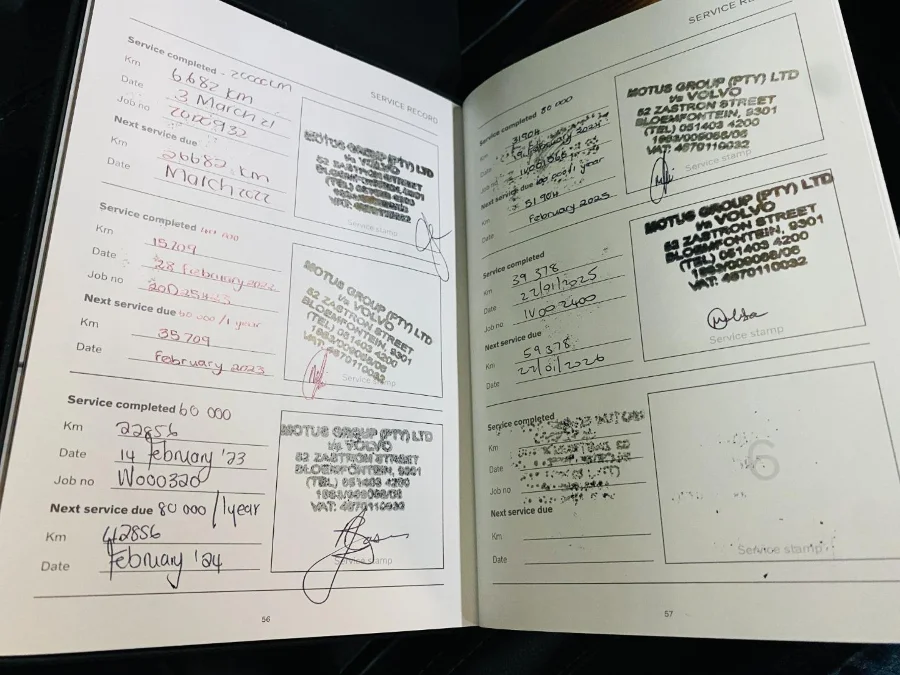 SERVICE RECORD
Service completed - 20000km
Km 6682 km
Date 3 March 21
Job no 2000932
Next service due
Km 26682 km
Date March 2022
MOTUS GROUP (PTY) LTD
t/a VOLVO
62 ZASTRON STREET
BLOEMFONTEIN, 9301
Service stamp
Service completed 40 000
Km 15709
Date 28 February 2022
Job no
Next service due 60 000/1 year
Km 35709
Date February 2023
MOTUS GROUP (PTY) LTD
t/a VOLVO
62 ZASTRON STREET
BLOEMFONTEIN, 9301
(TEL) 051403 4200
VAT: 4670110032
Service stamp
Service completed 60 000
Km 22856
Date 14 february '23
Job no W000320
Next service due 80 000/1year
Km 42856
Date february '24
MOTUS GROUP (PTY) LTD
t/a VOLVO
62 ZASTRON STREET
BLOEMFONTEIN, 9301
(TEL) 051403 4200
VAT: 4670110032
Service stamp
56
SERVICE
Service completed 80 000
Km 31904
Date February 2024
Job no
Next service due /1 year
Km 51904
Date February 2025
MOTUS GROUP (PTY) LTD
t/a VOLVO
62 ZASTRON STREET
BLOEMFONTEIN, 9301
(TEL) 051403 4200
VAT: 4670110032
Service stamp
Service completed
Km 39 378
Date 22/01/2025
Job no IV002400
Next service due
Km 59378
Date 22/01/2026
MOTUS GROUP (PTY) LTD
t/a VOLVO
62 ZASTRON STREET
BLOEMFONTEIN, 9301
(TEL) 051403 4200
VAT: 4670110032
Service stamp
Service completed
Km
Date
Job no
Next service due
Km
Date
6
Service stamp
57